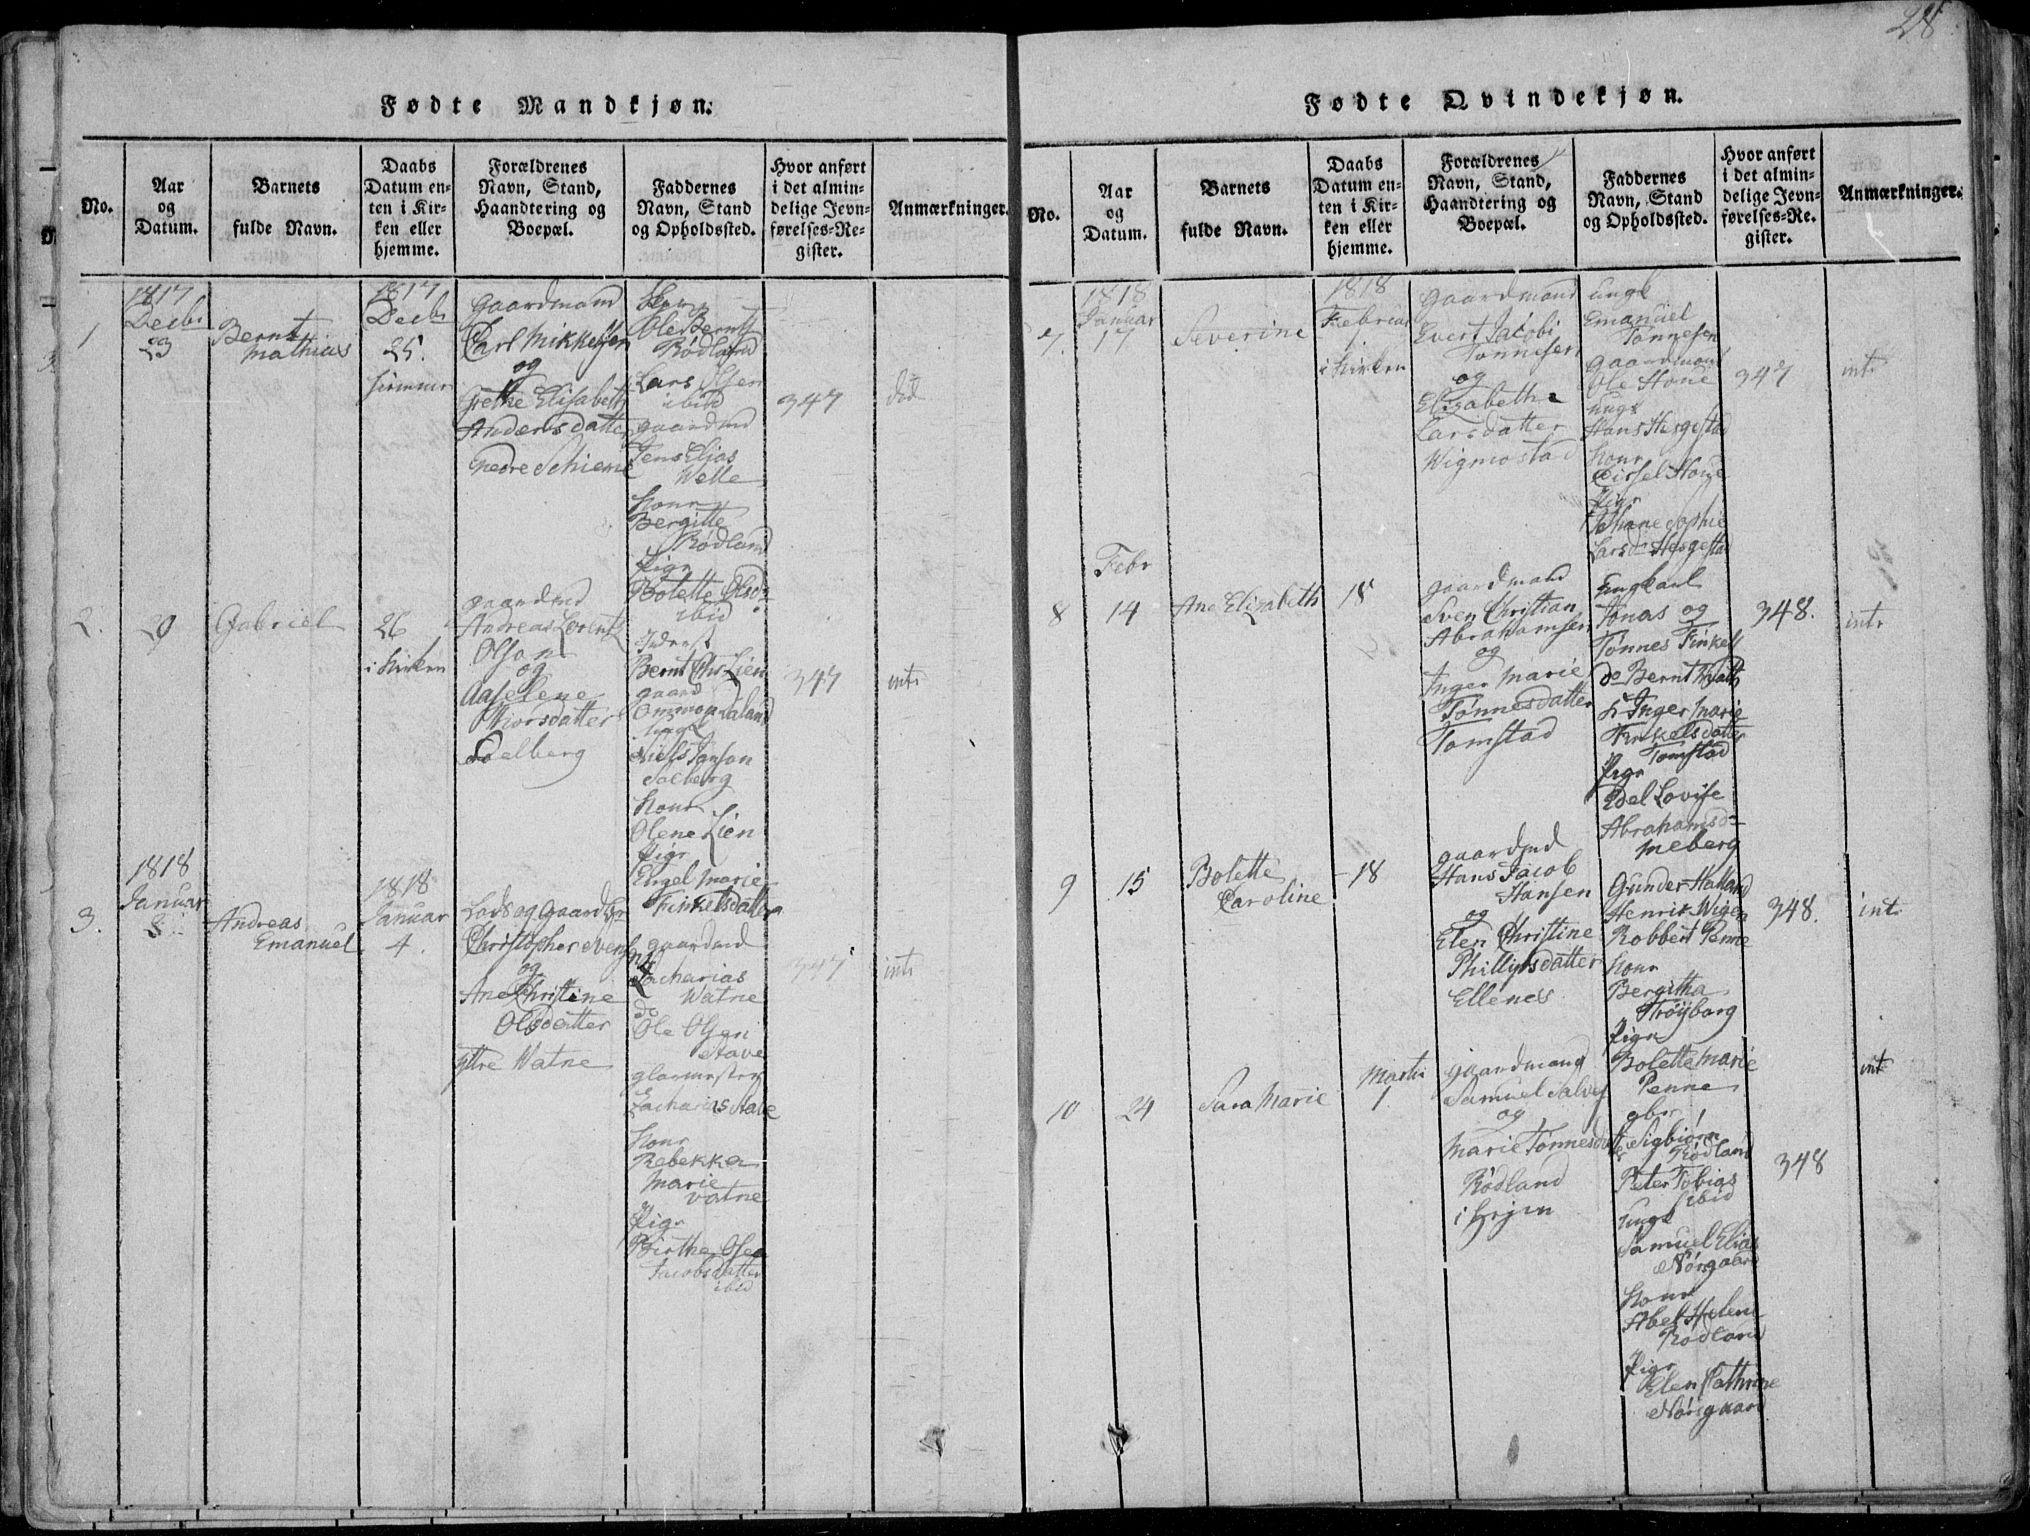 28
Fødte Mandkjøn.
No.
Aar
og
Datum.
Barnets
fulde Navn.
Daabs
Datum en-
ten i Kir-
ken eller
hjemme.
Forældrenes
Navn, Stand,
Haandtering og
Boepæl.
Faddernes
Navn, Stand
og Opholdssted.
Hvor anført
i det almin-
delige Jevn-
førelses-Re-
gister.
Anmærkninger.
1
1817
Decbr
23
Bernt
Mathias
1817
Decbr
25.
hiemme
gaardmand
Carl Mikkelsen
og
Grethe Elisabeth
Andersdatter
Nedre Schieme
Ole Berntz
Rödland
Lars Olsen
ibid
gaardmd
Jens Elias
Welle
Konr
Bergitte
Rödland
Pigr
Bolette Olsd
ibid
347
did
2.
29
Gabriel
26
i Kirken
gaardmd
Andreas Lorentz
Olson
og
Aaselene
Thorsdatter
Soelberg
Inderst
Bernt Chr Lien
gaard
Ommon Laland
ungk
Niels Janson
Solberg
Konr
Olene Lien
Pigr
Engel Marie
Finkelsdatter
347
intr
3.
1818
Januar
2
Andreas
Emanuel
1818
Januar
4.
Lods og Gaardbr
Christopher Svens
og
Ane Christine
Olsdatter
yttre Watne
gaardmd
Zacharias
Watne
do
Ole Olsen
Stave
glarmester
Zacharias Stave
Konr
Rebekka
Marie
Vatne
Pigr
Birthe Olea
Jacobsdatter
ibid
347
intr
Fødte Qvindekjøn.
No.
Aar
og
Datum.
Barnets
fulde Navn.
Daabs
Datum en-
ten i Kir-
ken eller
hjemme.
Forældrenes
Navn, Stand,
Haandtering og
Boepæl.
Faddernes
Navn, Stand
og Opholdssted.
Hvor anført
i det almin-
delige Jevn-
førelses-Re-
gister.
Anmærkninger.
7.
1818
Januar
17
Severine
1818
Februar
1
i Kirken
gaardmand
Evert Jacobi
Tönnesen
og
Elizabeth
Larsdatter
Wigmostad
ungk
Emanuel
Tønnesen
gaardmand
Ole Houe
ungk
Hans Hesgestad
Konr
Sissel Houe
Pigr
Johane Sophie
Larsd Hesgestad
347
intr
8
Febr
14
Ane Elizabeth
18
gaardmand
Sven Christian
Abrahamsen
og
Inger Marie
Tönnesdatter
Tomstad
ungkarl
Jonas og
Tönnes Finkels
do Bernt Wyatt
k Inger Marie
Finkelsdatter
Tomstad
Pigr
Edel Lovise
Abrahamsd
Meberg
348.
intr
9
15
Bolette
Caroline
18
gaardmd
Hans Jacob
Hansen
og
Elen Christine
Phillipsdatter
Ellenes
Gunder Halland
Henrik Wigen
Robbert Penne
Konr
Bergitha
Fröyborg
Pigr
Bolette Marie
Penne
348.
intr
10
24
Sara Marie
Martii
1.
gaardmand
Samuel Salves
og
Marie Tönnesdatter
Rödland
i Hejen
gbr
Sigbiörn
Rödland
Peter Tobias
ibid
ungk
Samuel Elias
Nörgaard
Konr
Abel Helene
Rödland
Pigr
Elen Cathrine
Nörgaard
348
intr